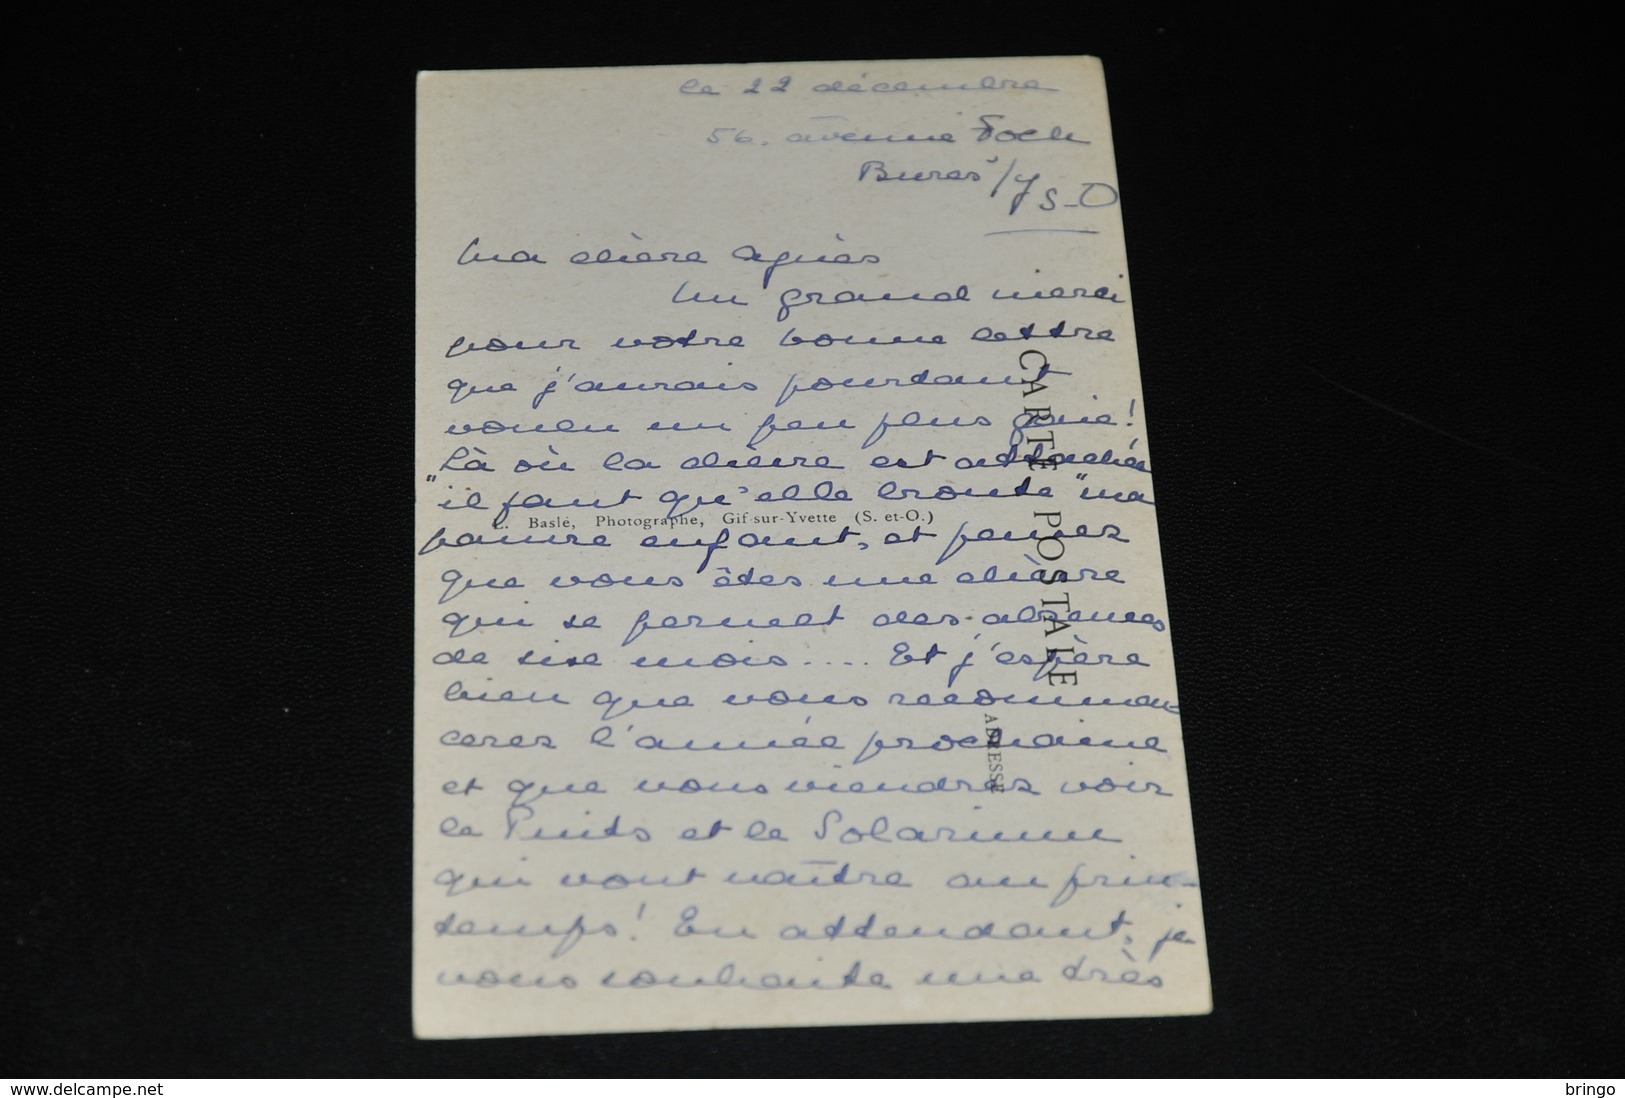 le 22 décembre
56. avenue Foch
Bures s/Y S-O
Ma chère Agnès
Un grand merci
pour votre bonne lettre
que j'aurais pourtant
voulu un peu plus gaie!
"Là où la chèvre est attachée
"il faut qu'elle broute" ma
L. Baslé, Photographe, Gif-sur-Yvette (S.-et-O.)
pauvre enfant, et pensez
que vous êtes une chèvre
qui se permet des absences
de six mois.... Et j'espère
bien que vous recommen-
cerez l'année prochaine
et que vous viendrez voir
le Puits et le Solarium
qui vont naître au prin-
temps! En attendant, je
vous souhaite une très
CARTE POSTALE
ADRESSE
www.delcampe.net
bringo